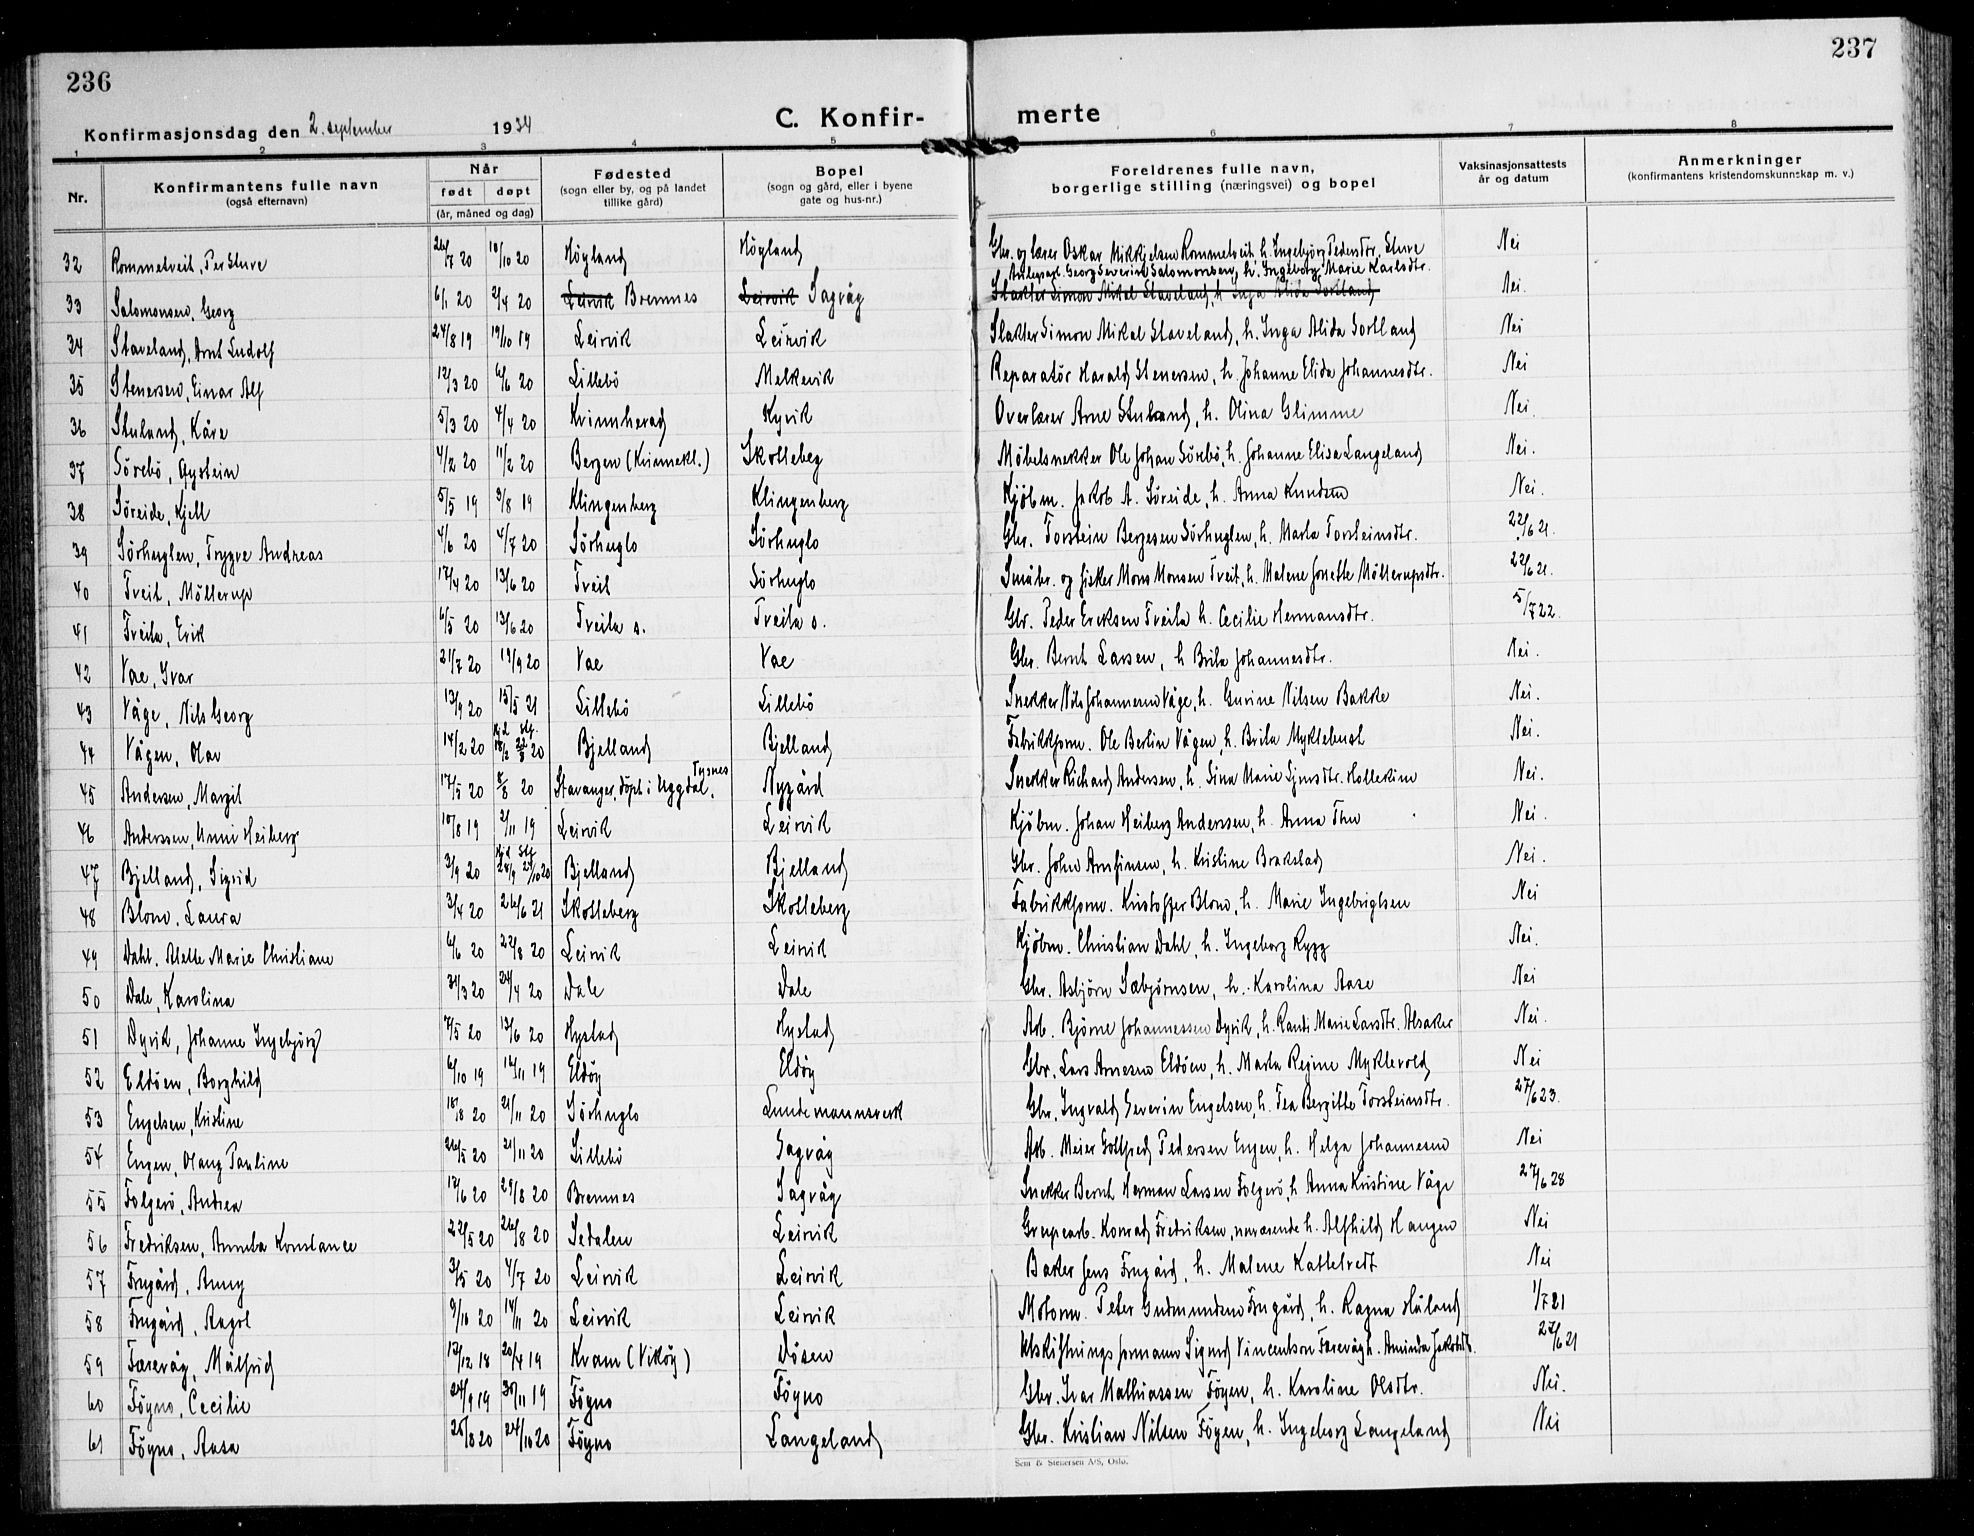 236
237
Konfirmasjonsdag den 2. september 1934
C. Konfir-
merte
1 2 3 4 5 6 7 8
Nr.
Konfirmantens fulle navn
(også efternavn)
Når
født døpt
(år, måned og dag)
Fødested
(sogn eller by, og på landet
tillike gård)
Bopel
(sogn og gård, eller i byene
gate og hus-nr.)
Foreldrenes fulle navn,
borgerlige stilling (næringsvei) og bopel
Vaksinasjonsattests
år og datum
Anmerkninger
(konfirmantens kristendomskunnskap m. v.)
32 Rommetveit, Per Sture 26/7 20 10/10 20 Høgland Høgland Gbr. og lærer Oskar Mikkjelsen Rommetveit, h. Ingebjørg Pedersdtr. Sture Nei
Georg Severin Salomonsen, h. Ingeborg Marie Karlsdtr.
33 Salomonsen, Georg 6/1 20 2/4 20 Leirvik Bremnes Leirvik Sagvåg Slakter Simon Mikal Staveland, h. Inga Alida Sortland Nei.
34 Staveland, Arnt Ludolf 24/8 19 19/10 19 Leirvik Leirvik Slakter Simon Mikal Staveland, h. Inga Alida Sortland Nei
35 Stenersen, Einar Alf 12/3 20 6/6 20 Lillebö Melkevik Reparatör Harald Stenersen, h. Johanne Elida Johannesdtr. Nei
36 Stuland, Kåre 5/3 20 4/4 20 Kvinnherad Kyvik Overlærer Arne Stuland, h. Olina Glimme Nei.
37 Sörebö, Øystein 4/2 20 11/2 20 Bergen (Kvinnekl.) Skolleberg Möbelsnekker Ole Johan Sörebö, h. Johanne Elisa Langeland Nei.
38 Söreide, Kjell 5/5 19 9/8 19 Klingenberg Klingenberg Kjöbm. Jakob A. Söreide, h. Anna Knudsen Nei.
39 Sörhuglen, Trygve Andreas 4/6 20 4/7 20 Sörhuglo Sörhuglo Gbr. Torstein Bergesen Sörhuglen, h. Marta Torsteinsdtr. 22/6 21.
40 Tveit, Möllerup 17/4 20 13/6 20 Tveit Sörhuglo Småbr. og fisker Mons Monsen Tveit, h. Malene Jonette Möllerupsdtr. 22/6 21.
41 Tveita, Erik 6/5 20 13/6 20 Tveita s. Tveita s. Gbr. Peder Eriksen Tveita h. Cecilie Hermansdtr. 5/7 22.
42 Vae, Ivar 21/7 20 19/9 20 Vae Vae Gbr. Bernt Larsen, h Brita Johannesdtr. Nei.
43 Våge, Nils Georg 13/9 20 15/5 21 Lillebö Lillebö Snekker Nils Johannesen Våge, h. Gurine Nilsen Bakke Nei.
44 Vågen, Olav 14/2 20 Hjd. 18/2 Stf. 22/8 20 Bjelland Bjelland Fabrikkform. Ole Berlin Vågen, h. Brita Myklebust Nei.
45 Andersen, Margit 17/5 20 8/8 20 Stavanger, döpt i Uggdal, Tysnes Nygård Snekker Richard Andersen, h. Sina Marie Nei.
46 Anderssen, Unni Heiberg 10/8 19 2/11 19 Leirvik Leirvik Kjöbm. Johan Heiberg Anderssen, h. Anna Thu Nei.
47 Bjelland, Sigrid 3/9 20 Hjd. 28/9 Stf. 24/10 20 Bjelland Bjelland Gbr. John Arnfinsen, h. Kristine Brakstad Nei.
48 Blom, Laura 3/4 20 26/6 21 Skolleberg Skolleberg Fabrikkform. Kristoffer Blom, h. Marie Ingebrigtsen Nei
49 Dahl, Alette Marie Christiane 6/6 20 22/8 20 Leirvik Leirvik Kjöbm. Christian Dahl, h. Ingeborg Rygg Nei.
50 Dale, Karolina 31/3 20 24/4 20 Dale Dale Gbr. Asbjörn Sæbjörnsen, h. Karolina Aase Nei
51 Dyvik, Johanne Ingebjörg 7/5 20 13/6 20 Hystad Hystad Arb. Bjørne Johannessen Dyvik, h. Randi Marie Larsdtr. Alsaker Nei.
52 Eldöen, Borghild 6/10 19 14/11 19 Eldöy Eldöy Gbr. Lars Arnesen Eldöen, h. Marta Regine Myklevold Nei
53 Engelsen, Kristine 18/8 20 21/11 20 Sörhuglo Lundemannsverk Gbr. Ingvald Severin Engelsen, h. Tea Bergitte Torsteinsdtr. 27/6 23.
54 Engen, Olaug Pauline 26/5 20 21/11 20 Lillebö Sagvåg Arb. Meier Gotfred Pedersen Engen, h. Helga Johannesen Nei
55 Folgerö, Andrea 17/6 20 29/8 20 Bremnes Sagvåg Snekker Bernt Herman Larsen Folgerö, h Anna Kristine Våge 27/6 28
56 Fredriksen, Annba Konstance 22/5 20 26/8 20 Sedalen Leirvik Konrad Fredriksen, nuværende h. Alfhild Haugen Nei
57 Frugård, Anny 3/5 20 4/7 20 Leirvik Leirvik Baker Jens Frugård, h. Malene Kattetvedt Nei
58 Frugård, Aagot 9/10 20 14/11 20 Leirvik Leirvik Motorm. Peter Gudmundsen Frugård, h. Ragna Håland 1/7 21
59 Færevåg, Målfrid 12/12 18 20/4 19 Kvam (Viköy) Dösen Utskiftningsformann Sigurd Vincentson Færevåg h. Aminda Jakobsdtr. 27/6 21
60 Föyno, Cecilie 24/9 19 30/11 19 Föyno Föyno Gbr. Ivar Mathiassen Föyen, h. Karoline Olsdtr. Nei.
61 Föyno, Aasa 25/8 20 24/10 20 Föyno Langeland Gbr. Kristian Nilsen Föyen, h. Ingeborg Langeland Nei
Sem & Stenersen A/S, Oslo.